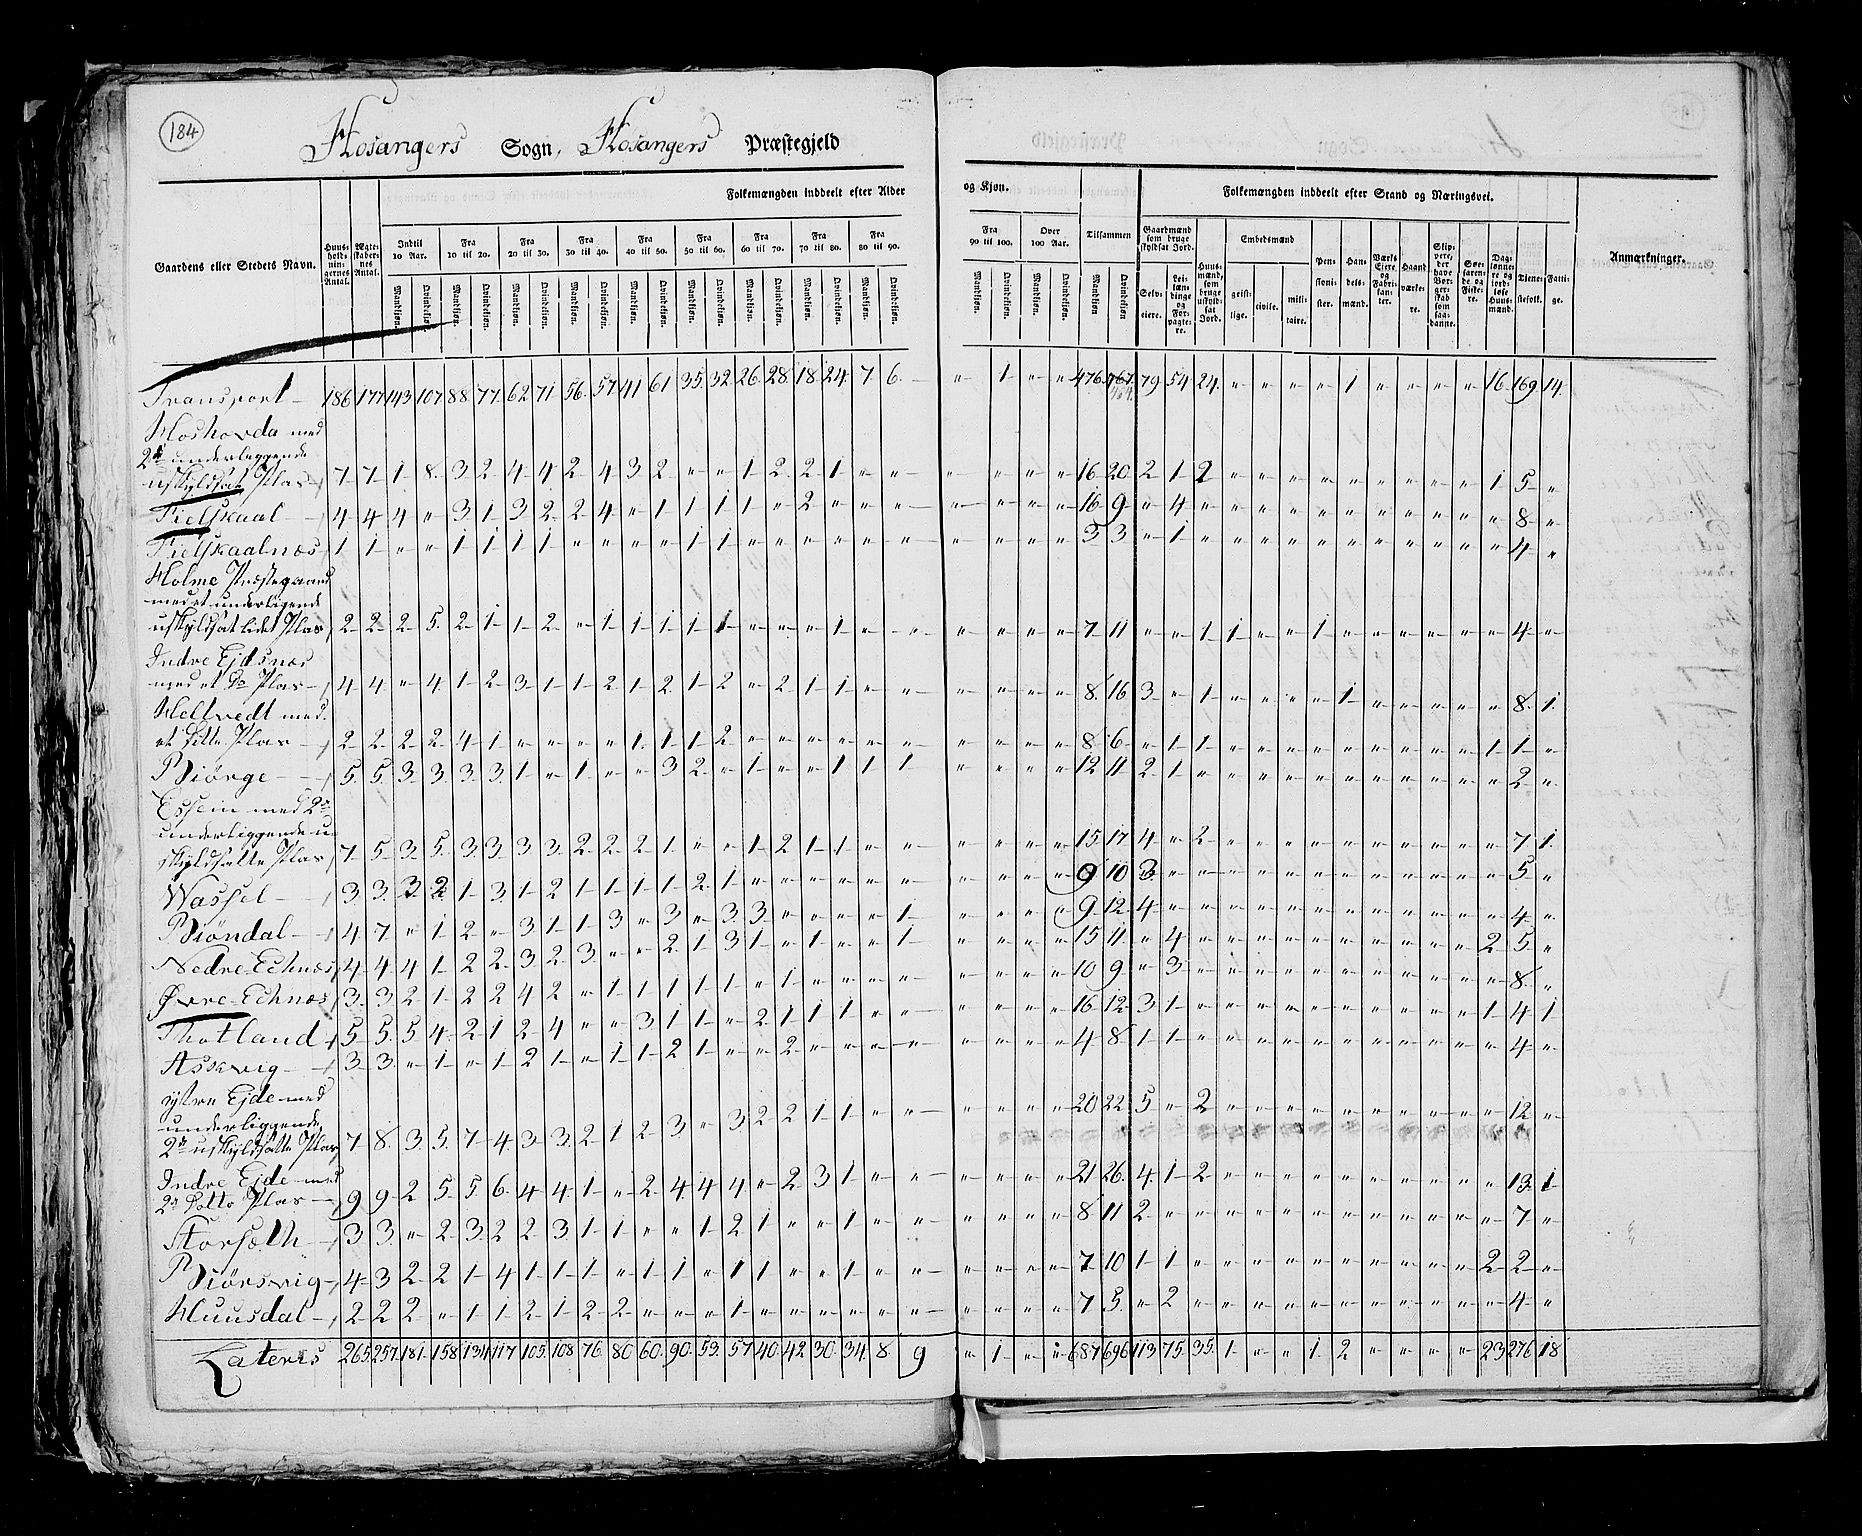 184
Hosangers Sogn, Hosangers Præstegjeld
Gaardens eller Stedets Navn.
Huus-holdnin-gernes Antal.
Ægte-skaber-nes Antal.
Folkemængden inddeelt efter Alder og Kjøn.
Indtil 10 Aar. Fra 10 til 20. Fra 20 til 30. Fra 30 til 40. Fra 40 til 50. Fra 50 til 60. Fra 60 til 70. Fra 70 til 80. Fra 80 til 90. Fra 90 til 100. Over 100 Aar. Tilsammen
Mandkjøn. Qvindekjøn.
Folkemængden inddeelt efter Stand og Næringsvei.
Gaardmænd som bruge skyldsat Jord.
Selveiere. Leilændinge og Forpagtere.
Huusmænd, som bruge uskyldsat Jord.
Embedsmænd
geistlige. civile. militaire.
Pensionister.
Handelsmænd.
Værks Eiere og Fabrikanter.
Haandværkere.
Søefarende og Fiskere.
Daglønnere og jordløse Huusmænd.
Tjenestefolk.
Fattige.
Anmærkninger.
Transport 186 177 143 107 88 77 62 71 56 57 41 61 35 32 26 28 18 24 7 6 " 1 " " 476 767 79 54 24 " " " " 1 " " " " 16 169 14
Moshovda med
2de underliggende
uskyldsat Plas 7 7 1 8 3 2 4 4 2 4 3 2 " " 1 2 2 1 " " " " " " 16 20 2 1 2 " " " " " " " " " 1 5 "
Fielskaal 4 4 4 " 3 1 3 2 2 4 " 1 1 1 1 " 2 " " " " " " " 16 9 " 4 " " " " " " " " " " " 8 "
Fielskaalnæs 1 1 " " 1 1 1 1 " " " " 1 1 " " " " " " " " " " 3 3 " 1 " " " " " " " " " " " 4 "
Holme Præstegaard
med et underligende
uskyldsat lidet Plas 2 2 2 5 2 1 1 2 " 1 1 1 1 1 " " " 1 " " " " " " 7 11 " " 1 1 " " 1 " " " " " " 4 "
Indre Ejdsnæs
med et Do Plas 4 4 " 4 1 2 3 1 1 2 1 2 1 2 " 2 1 1 " " " " " " 8 16 3 " 1 " " " " 1 " " " " " 8 1
Hellvedt med
et Ditto Plas 2 2 2 2 4 1 " " " " 1 1 1 2 " " " " " " " " " " 8 6 " 1 1 " " " " " " " " " 1 1 "
Biørge 5 5 3 3 3 3 1 " 1 " " 3 2 " 1 " " 1 1 1 " " " " 12 11 2 1 " " " " " " " " " " " 2 "
Essem med 2de
underliggende u-
skyldsatte Plas 7 5 3 5 3 3 3 3 2 2 2 1 " " 1 2 1 1 " " " " " " 15 17 4 " 2 " " " " " " " " " " 7 1
Wassel 3 3 3 2 1 3 1 2 1 1 1 1 2 1 " " " " " " " " " " 9 10 3 " " " " " " " " " " " " 5 "
Biøndal 4 7 " 1 2 " 3 1 1 3 " 3 " 3 3 " " " " 1 " " " " 9 12 4 " " " " " " " " " " " " 4 "
Nedre Echnæs 4 4 4 1 2 2 3 2 3 " " 2 1 3 1 " 1 " " 1 " " " " 15 11 " 4 " " " " " " " " " " 2 5 "
Øvre Echnæs 3 3 2 1 2 2 4 2 " 1 1 1 1 1 " 1 " " " " " " " " 10 9 " 3 " " " " " " " " " " " 8 "
Thotland 5 5 5 4 2 1 2 4 " " 3 1 1 " 2 1 1 1 " " " " " " 16 12 3 1 " " " " " " " " " " 1 4 1
Asskvig 3 3 " 1 " 1 2 1 " 1 1 2 1 " " 2 " " " " " " " " 4 8 1 1 " " " " " " " " " " " 4 "
ystre Ejde med
underliggende
2de uskyldsatte Plas 7 8 3 5 7 4 3 3 2 1 2 3 " 3 2 2 1 1 " " " " " " 20 22 5 " 2 " " " " " " " " " " 12 "
Indre Ejde med
2de Ditto Plas 9 9 2 5 5 6 4 4 1 " 2 4 4 4 " 2 3 1 " " " " " " 21 26 4 1 2 " " " " " " " " " " 13 1
Storsæth 3 3 " 2 3 2 2 3 1 1 " " 1 2 1 " " 1 " " " " " " 8 11 2 " " " " " " " " " " " " 7 "
Biørsvig 4 3 2 2 1 4 1 1 1 " 1 1 " 1 1 " " 1 " " " " " " 7 10 1 1 " " " " " " " " " " 2 2 "
Huusdal 2 2 2 " 1 1 2 1 2 2 " " " 1 " " " " " " " " " " 7 5 " 2 " " " " " " " " " " " 4 "
Lateris 265 257 181 158 134 117 105 108 76 80 60 90 53 57 40 42 30 34 8 9 " 1 " " 687 696 113 75 35 1 " " 1 2 " " " " 23 276 18